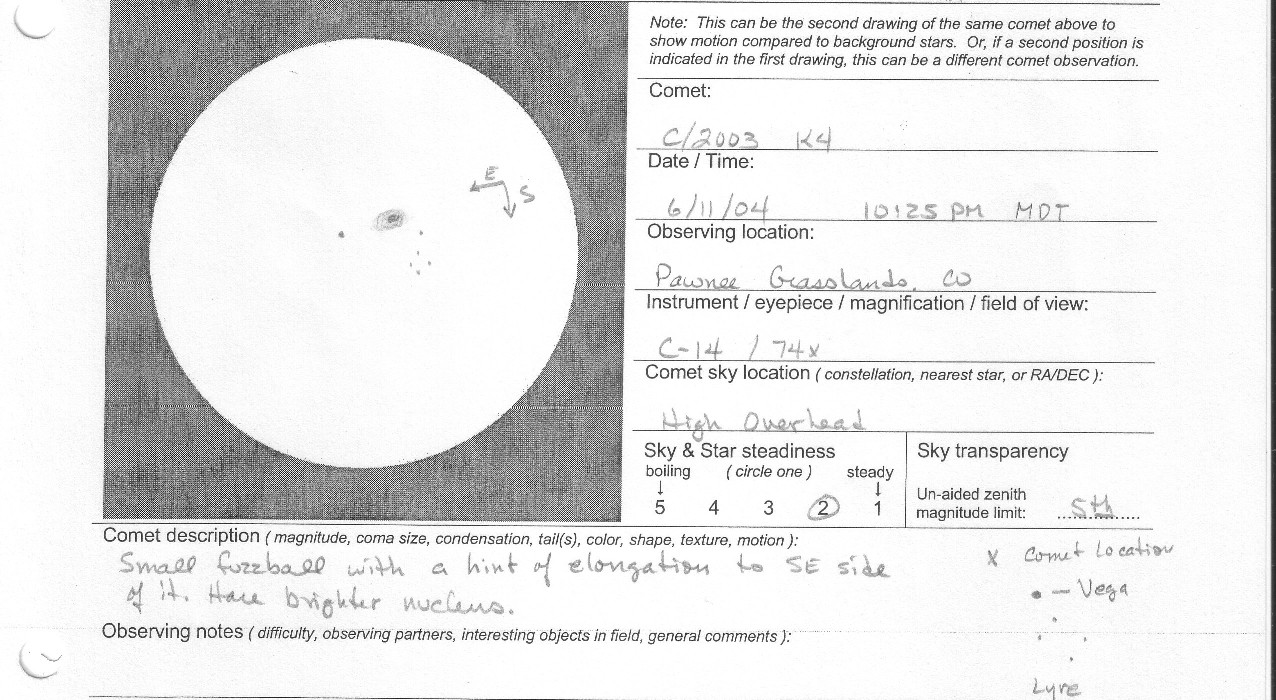 Note: This can be the second drawing of the same comet above to
show motion compared to background stars. Or, if a second position is
indicated in the first drawing, this can be a different comet observation.
Comet:
C/2003 K4
Date / Time:
6/11/04 10:25 PM MDT
Observing location:
Pawnee Grasslands, CO
Instrument / eyepiece / magnification / field of view:
C-14 / 74x
Comet sky location ( constellation, nearest star, or RA/DEC ):
High Overhead
E
S
Sky & Star steadiness
boiling ( circle one ) steady
5 4 3 2 1
Sky transparency
Un-aided zenith
magnitude limit: 5th
Comet description ( magnitude, coma size, condensation, tail(s), color, shape, texture, motion ):
Small fuzzball with a hint of elongation to SE side
of it. Have brighter nucleus.
X Comet Location
• — Vega
Lyre
Observing notes ( difficulty, observing partners, interesting objects in field, general comments ):